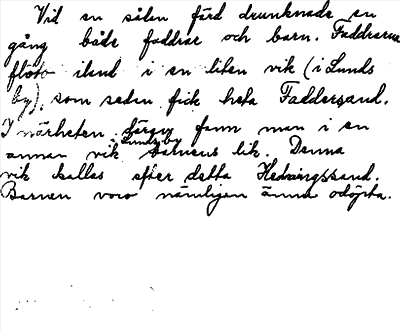 Vid en sålen färd drunknade en
gång både faddrar och barn. Faddrarna
flöto iland i en liten vik (i Lunds
by), som sedan fick heta Faddersand.
I närheten därav fann man i en
annan vik i Lunds by barnens lik. Denna
vik kallas efter detta Hedningssand.
Barnen voro nämligen ännu odöpta.